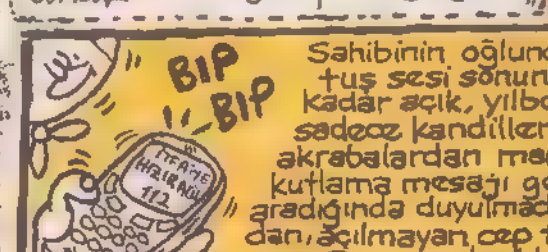 BIP
BIP
112
Sahibinin oğlund
tuş sesi sonun
kadar açık, yılbo
sadece kandiller
akrabalardan mes
kutlama mesajı ge
aradığında duyulmad
dan, açılmayan cep t